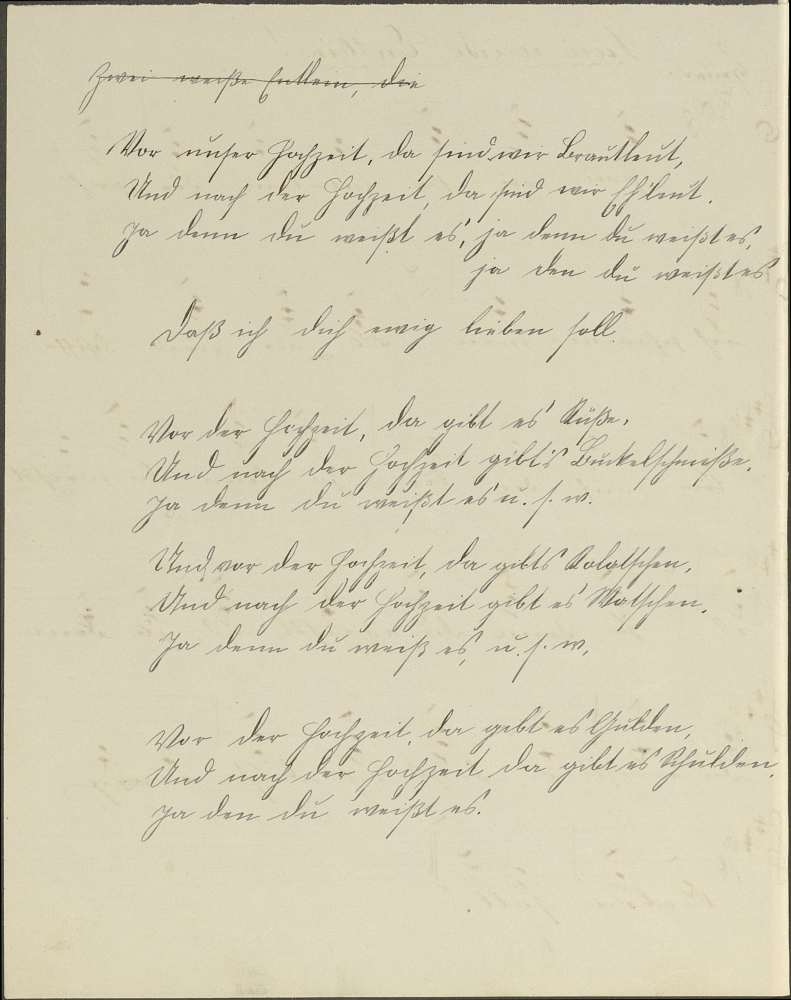 Zwei weiße Entlein, die
Vor unser Hochzeit, da sind wir Brautleut,
Und nach der Hochzeit, da sind wir Ehleut.
Ja denn du weißt es, ja denn du weißt es,
ja den du weißt es
Daß ich dich ewig lieben soll.
Vor der Hochzeit, da gibt es Küße,
Und nach der Hochzeit gibt's Buckelschmiße,
Ja denn du weißt es u. s. w.
Und vor der Hochzeit, da gibts Kolatschen,
Und nach der Hochzeit gibt es Watschen,
Ja denn du weiß es, u. s. w.
Vor der Hochzeit, da gebt es Gulden,
Und nach der Hochzeit da gibt es Schulden,
Ja den du weißt es.